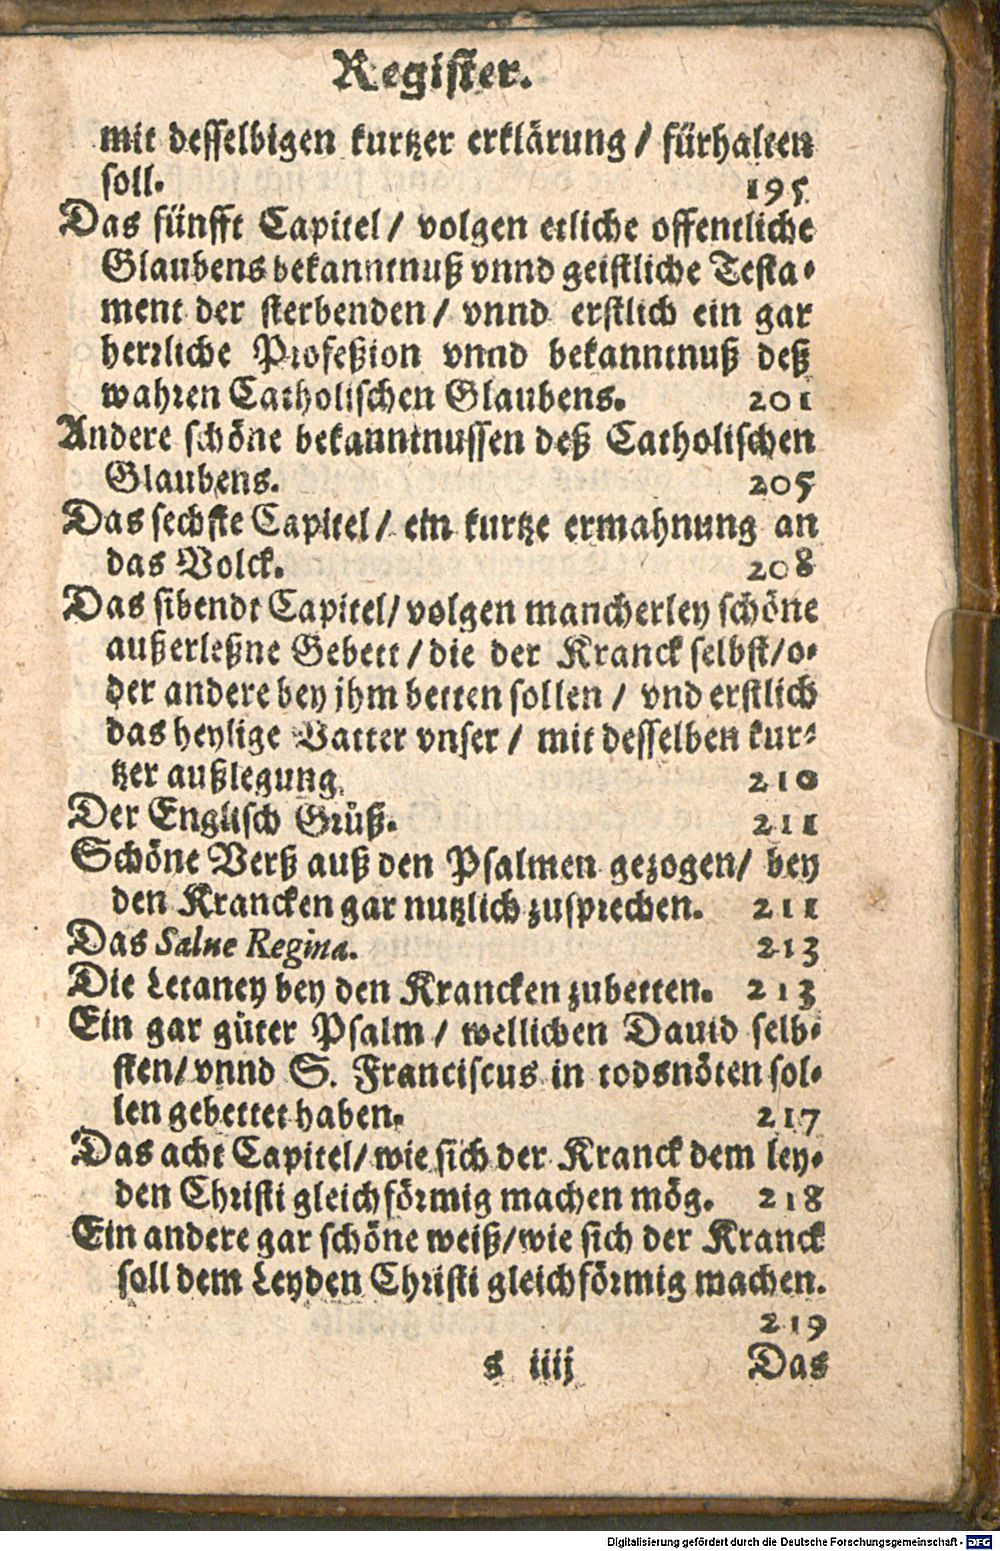 Register.
mit desselbigen kurtzer erklärung / fürhalten
soll. 195
Das fünfft Capitel / volgen etliche offentliche
Glaubens bekanntnuß vnnd geistliche Testa-
ment der sterbenden / vnnd erstlich ein gar
herrliche Profeßion vnnd bekanntnuß deß
wahren Catholischen Glaubens. 201
Andere schöne bekanntnussen deß Catholischen
Glaubens. 205
Das sechste Capitel / ein kurtze ermahnung an
das Volck. 208
Das sibendt Capitel / volgen mancherley schöne
außerleßne Gebett / die der Kranck selbst / o-
der andere bey jhm betten sollen / vnd erstlich
das heylige Vatter vnser / mit desselben kur-
tzer außlegung. 210
Der Englisch Grüß. 211
Schöne Verß auß den Psalmen gezogen / bey
den Krancken gar nutzlich zusprechen. 211
Das Salue Regina. 213
Die Letaney bey den Krancken zubetten. 213
Ein gar güter Psalm / wellichen Dauid selb-
sten / vnnd S. Franciscus in todsnöten sol-
len gebettet haben. 217
Das acht Capitel / wie sich der Kranck dem ley-
den Christi gleichförmig machen mög. 218
Ein andere gar schöne weiß / wie sich der Kranck
soll dem Leyden Christi gleichförmig machen.
219
s iiij Das
Digitalisierung gefördert durch die Deutsche Forschungsgemeinschaft - DFG